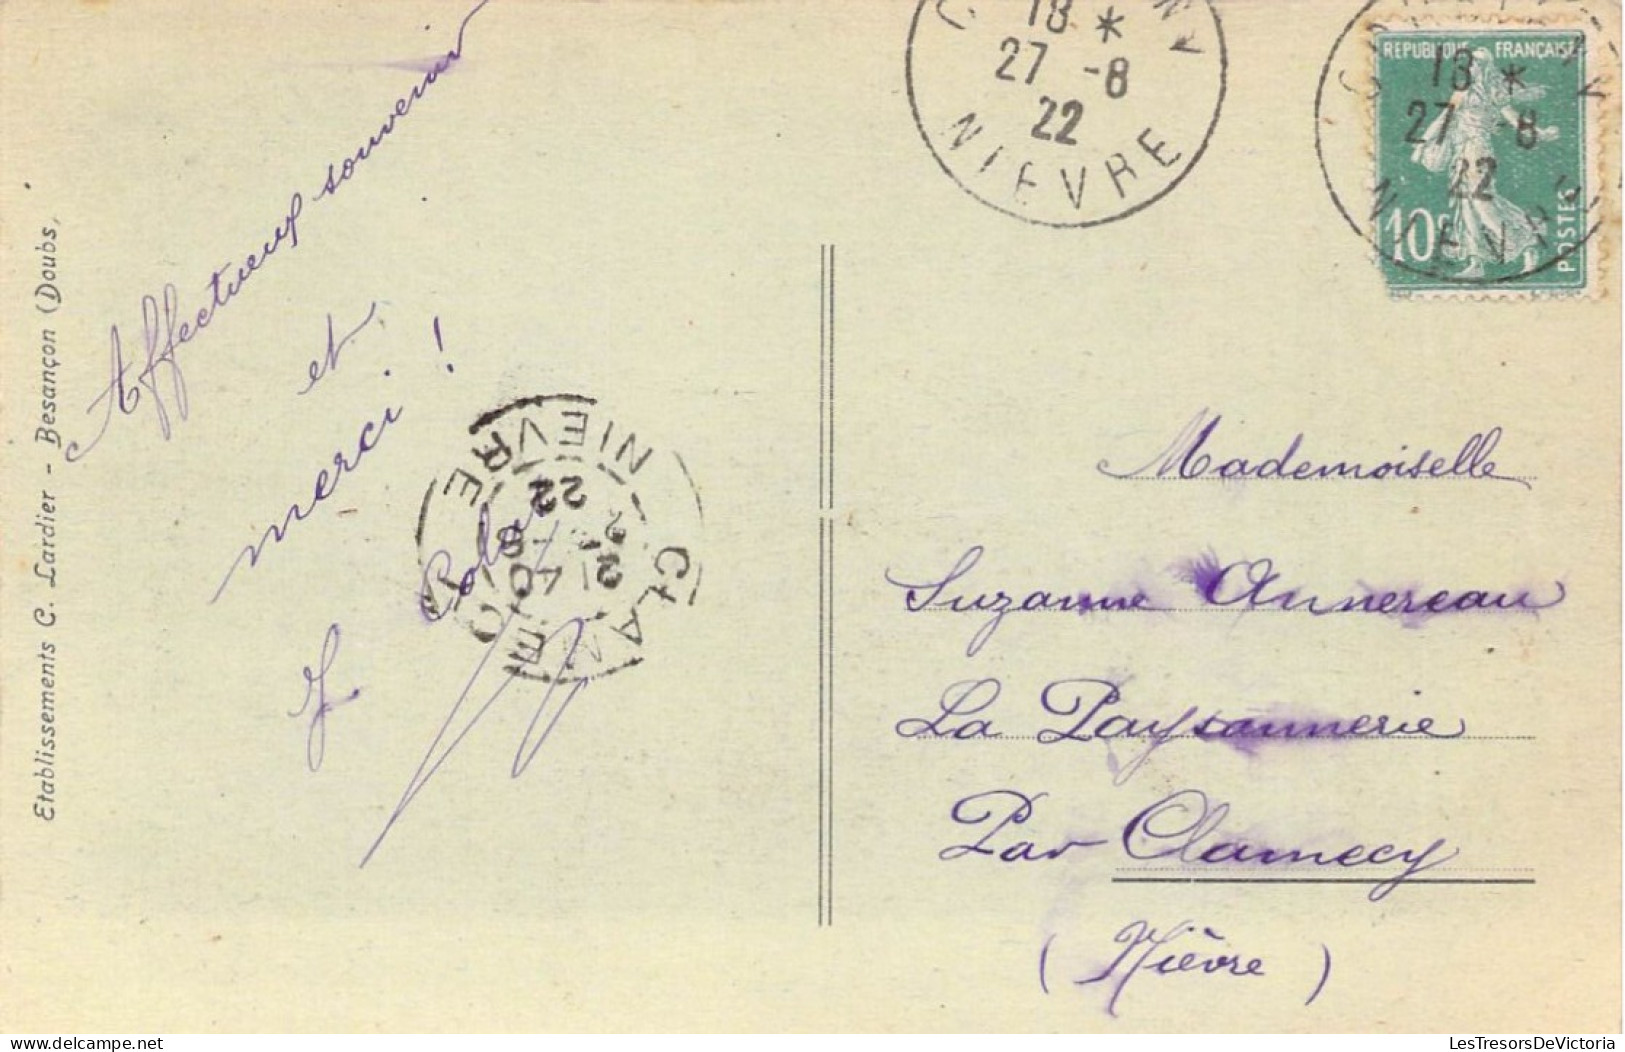 Affectueux souvenir
et
merci !
Etablissements C. Lardier - Besançon (Doubs,
18 *
27 -8
22
NIEVRE
REPUBLIQUE FRANCAISE
18 *
27 -8
22
NIEVRE
10c
POSTES
CLAMECY
22
NIEVRE
Mademoiselle
Suzanne Annereau
La Paysannerie
Par Clamecy
( Nièvre )
© delcampe.net
LesTresorsDeVictoria